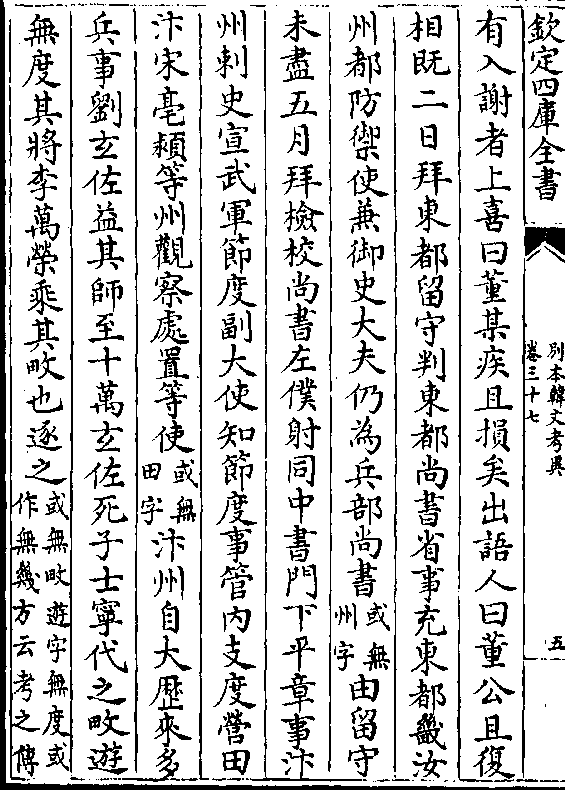 欽定四庫全書
別本韓文考異
卷三十七
五
有入謝者上喜曰董某疾且損矣出語人曰董公且復
相既二日拜東都留守判東都尚書省事充東都畿汝
州都防禦使兼御史大夫仍為兵部尚書或無州字由留守
未盡五月拜檢校尚書左僕射同中書門下平章事汴
州刺史宣武軍節度副大使知節度事管内支度營田
汴宋亳潁等州觀察處置等使或無田字汴州自大歴來多
兵事劉玄佐益其師至十萬玄佐死子士寧代之畋遊
無度其將李萬榮乘其畋也逐之或無畋遊字無度或作無幾方云考之傳